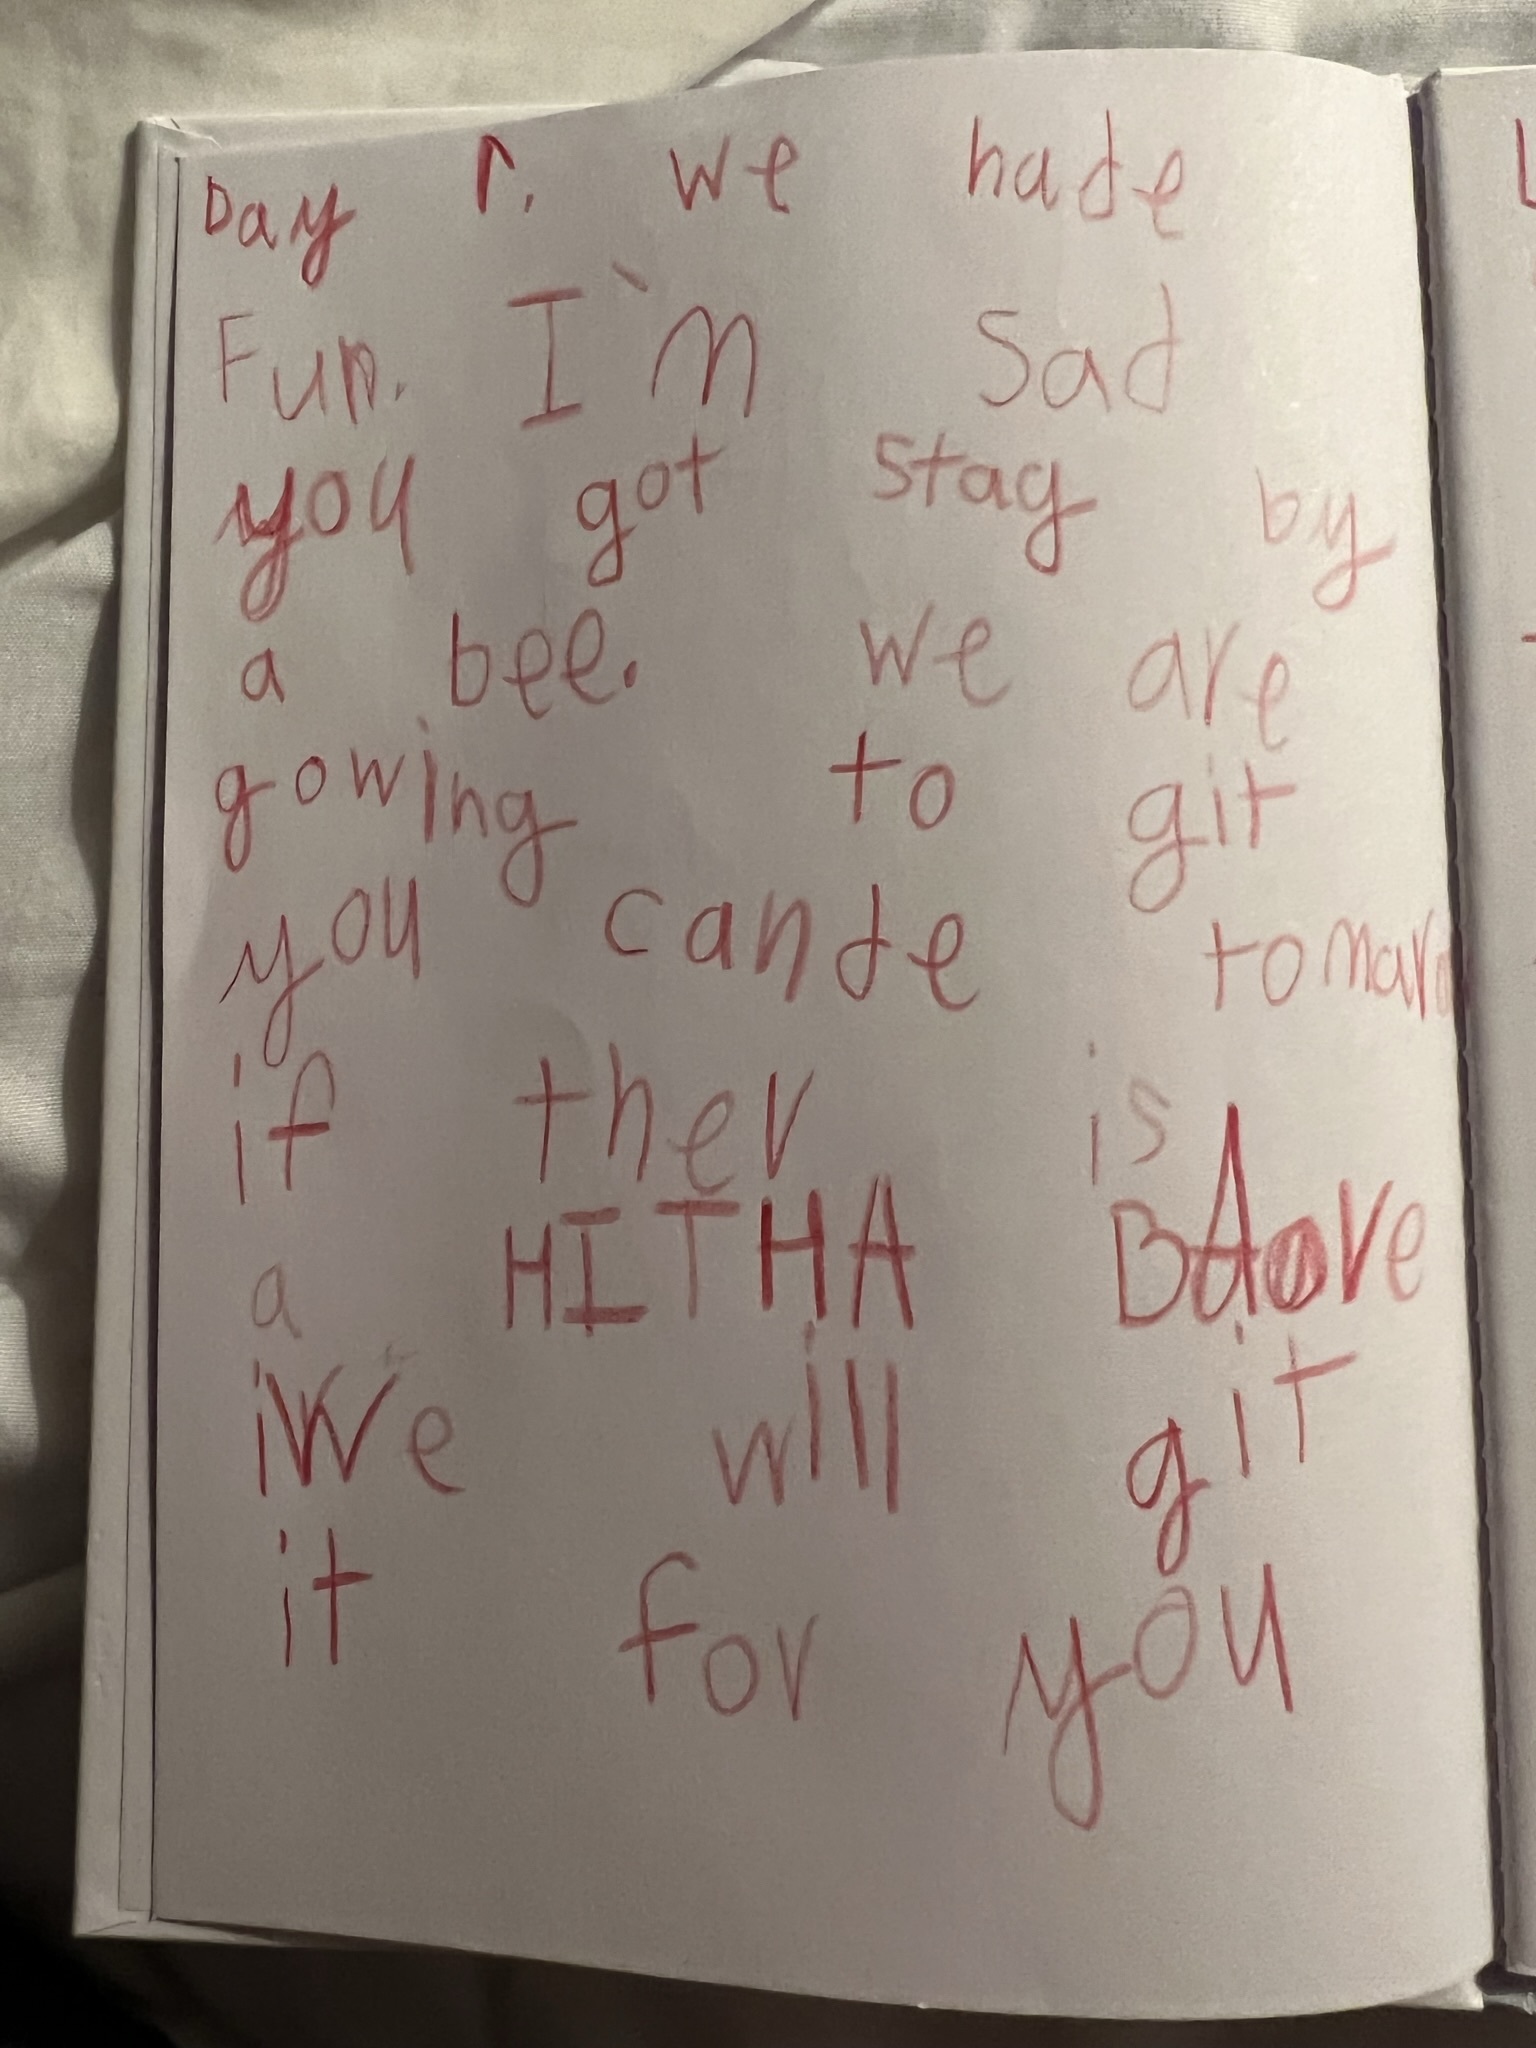 Day 1. we hade
Fun. I'm Sad
you got stag by
a bee. we are
gowing to git
you cande tomaro
if ther is
a HITHA BAove
we will git
it for you